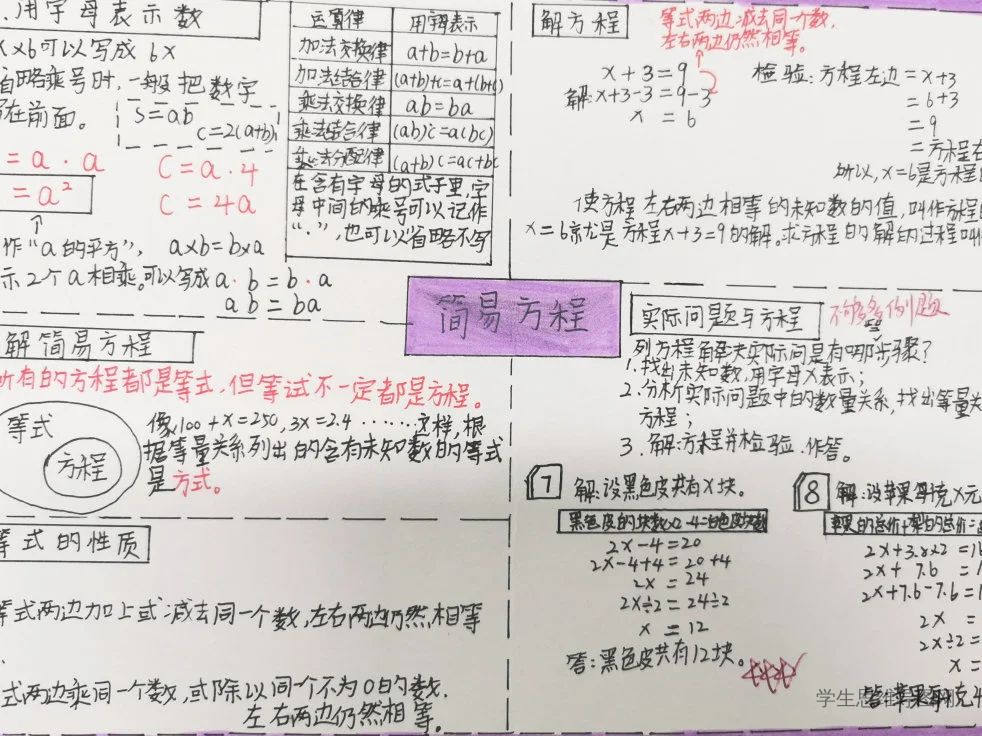 .用字母表示数
x×6可以写成 6x
省略乘号时,一般把数字
在前面。
S=ab
C=2(a+b)
=a·a
=a²
C=a·4
C=4a
作“a的平方”,
示2个a相乘。
a×b=b×a
可以写成a·b=b·a
ab=ba
运算律 用字母表示
加法交换律 a+b=b+a
加法结合律 (a+b)+c=a+(b+c)
乘法交换律 ab=ba
乘法结合律 (ab)c=a(bc)
乘法分配律 (a+b)c=ac+bc
在含有字母的式子里,字
母中间的乘号可以记作
“·”,也可以省略不写
解方程
等式两边减去同一个数,
左右两边仍然相等。
x+3=9
解:x+3-3=9-3
x=6
检验:方程左边=x+3
=6+3
=9
=方程右
所以,x=6是方程的
使方程左右两边相等的未知数的值,叫作方程的
x=6就是方程x+3=9的解。求方程的解的过程叫作
简易方程
解简易方程
所有的方程都是等式,但等试不一定都是方程。
等式
方程
像,100+x=250,3x=2.4……这样,根
据等量关系列出的含有未知数的等式
是方式。
等式的性质
等式两边加上或减去同一个数,左右两边仍然相等
式两边乘同一个数,或除以同一个不为0的数,
左右两边仍然相等。
实际问题与方程
不够多
例题
列方程解决实际问是有哪步骤?
1.找出未知数,用字母x表示;
2.分析实际问题中的数量关系,找出等量关
方程;
3.解方程并检验作答。
7
解:设黑色皮共有x块。
黑色皮的块数×2-4=白色皮块数
2x-4=20
2x-4+4=20+4
2x=24
2x÷2=24÷2
x=12
答:黑色皮共有12块。
8
解:设苹果每千克x元
苹果的总价+梨的总价=
2x+3.8×2=1
2x+7.6=1
2x+7.6-7.6=1
2x=
2x÷2=
x=
答:苹果每千克
学生思维